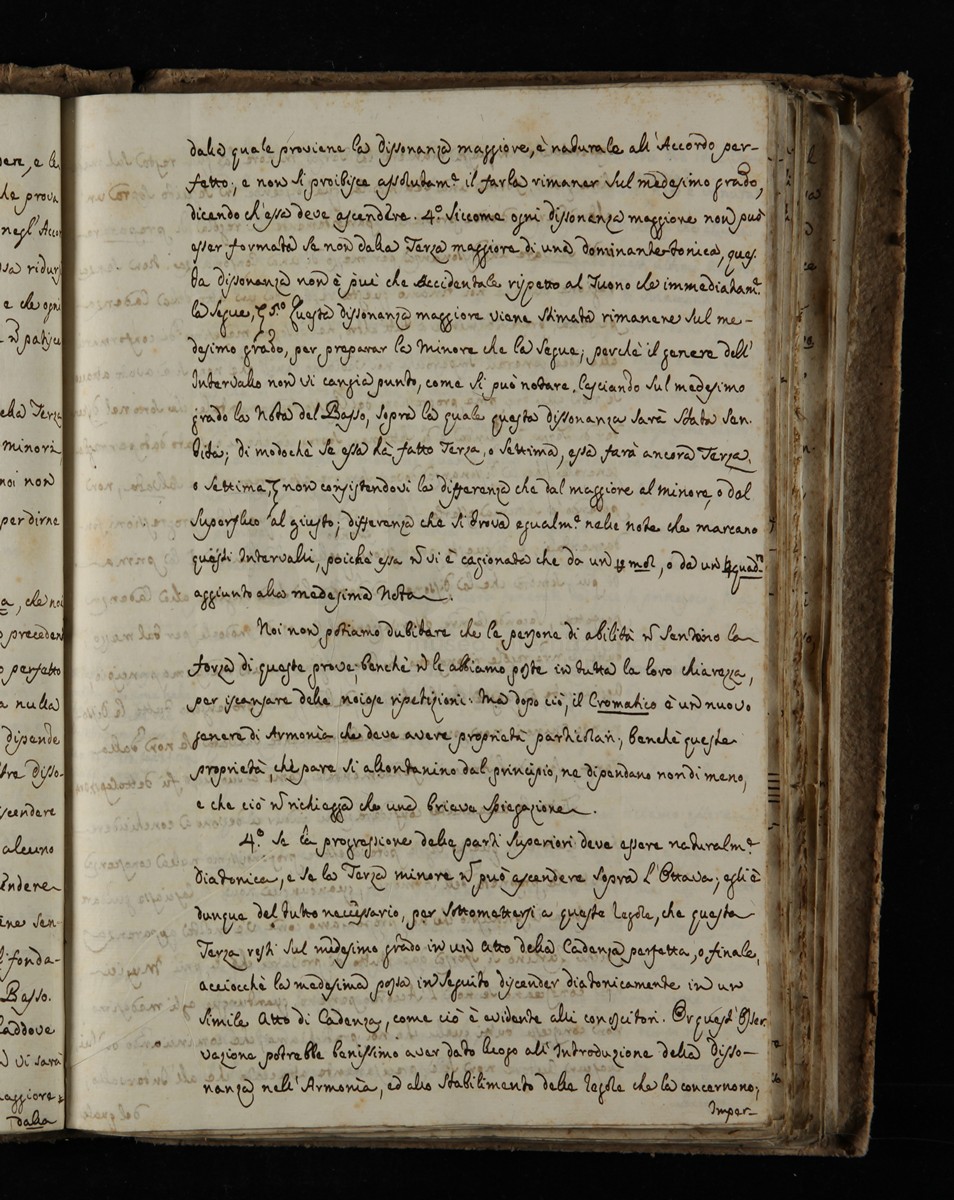 dalla quale proviene la dissonanza maggiore, è naturale all'Accordo per-
fetto; e non si proibisce assolutam.e il farla rimaner sul medesimo grado,
dicendo ch'essa deve ascendere. 4.° Siccome ogni dissonanza maggiore non può
esser formata se non dalla Terza maggiore di una dominante-tonica, ques-
ta dissonanza non è più che accidentale rispetto al Tuono che immediatam.e
la segue, 5.° Questa dissonanza maggiore viene stimata rimanere sul me-
desimo grado, per preparar la minore che la segue; perchè il genere dell'
Intervallo non vi cangia punto, come si può notare, lasciando sul medesimo
grado la Nota del Basso, sopra la quale questa dissonanza sarà stata sen-
tita; di modochè se essa hà fatto Terza, o settima, essa farà ancora Terza,
o settima, non consistendovi la differenza che dal maggiore al minore, o dal
superfluo al giusto; differenza che si trova egualm.e nelle note che marcano
questi Intervalli, poichè essa ñ vi è cagionata che da un B mol, o da un B quad.ro
aggiunto alla medesima Nota.
Noi non possiamo dubitare che le persone di abilità ñ sentono la
forza di queste prove, benchè ñ le abbiamo poste in tutta la loro chiarezza,
per iscansare delle noiose ripetizioni. Ma dopo ciò, il Cromatico è un nuovo
genere di Armonia che deve avere proprietà particolari, benchè queste
proprietà, chè pare si allontanino dal principio, ne dipendano nondimeno,
e che ciò ñ richiegga che una brieve spiegazione.
4.° Se la progressione delle parti superiori deve essere naturalm.e
Diatonica, e se la Terza minore ñ può ascendere sopra l'Ottava; egli è
dunque del tutto necessario, per sottomettersi a queste regole, che questa
Terza resti sul medesimo grado in un atto della Cadenza perfetta, o finale,
acciocchè la medesima possa in seguito discender diatonicamente in un
simile atto di Cadenza, come ciò è evidente alli conoscitori. Or quest'osser-
vazione potrebbe benissimo aver dato luogo all'Introduzione della disso-
nanza nell'Armonia, ed allo stabilimento delle regole che la concernono;
Imper-